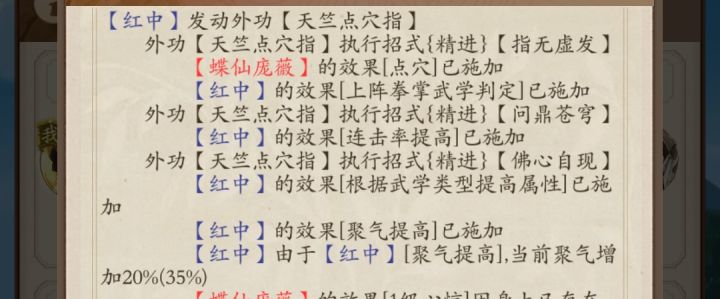 【红中】发动外功【天竺点穴指】
外功【天竺点穴指】执行招式{精进}【指无虚发】
【蝶仙庞薇】的效果[点穴]已施加
【红中】的效果[上阵拳掌武学判定]已施加
外功【天竺点穴指】执行招式{精进}【问鼎苍穹】
【红中】的效果[连击率提高]已施加
外功【天竺点穴指】执行招式{精进}【佛心自现】
【红中】的效果[根据武学类型提高属性]已施
加
【红中】的效果[聚气提高]已施加
【红中】由于【红中】[聚气提高],当前聚气增
加20%(35%)